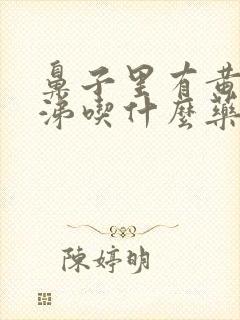 鼻子里有黃
涕喫什麼藥
陳婷明